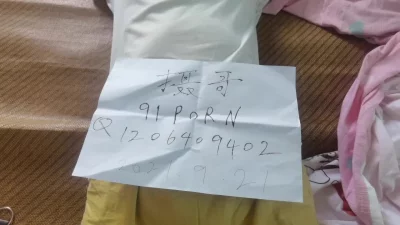 摄哥
91PORN
Q1206409402